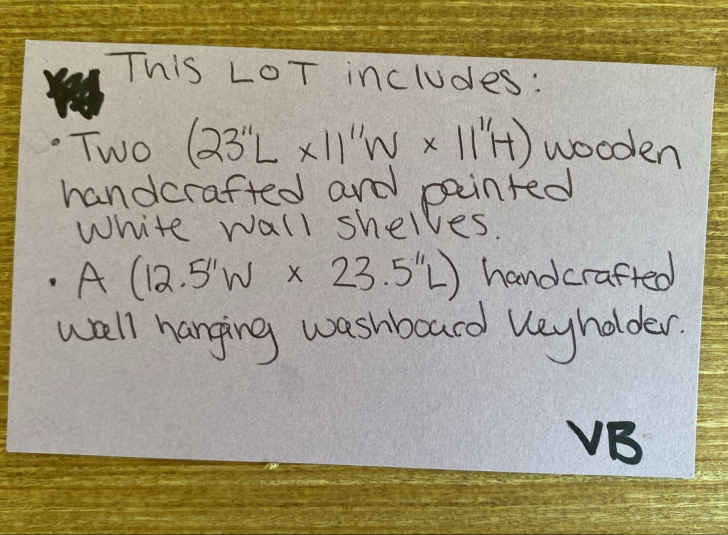 This LOT includes:
• Two (23"L x 11"W x 11"H) wooden
handcrafted and painted
white wall shelves.
• A (12.5"W x 23.5"L) handcrafted
wall hanging washboard Keyholder.
VB